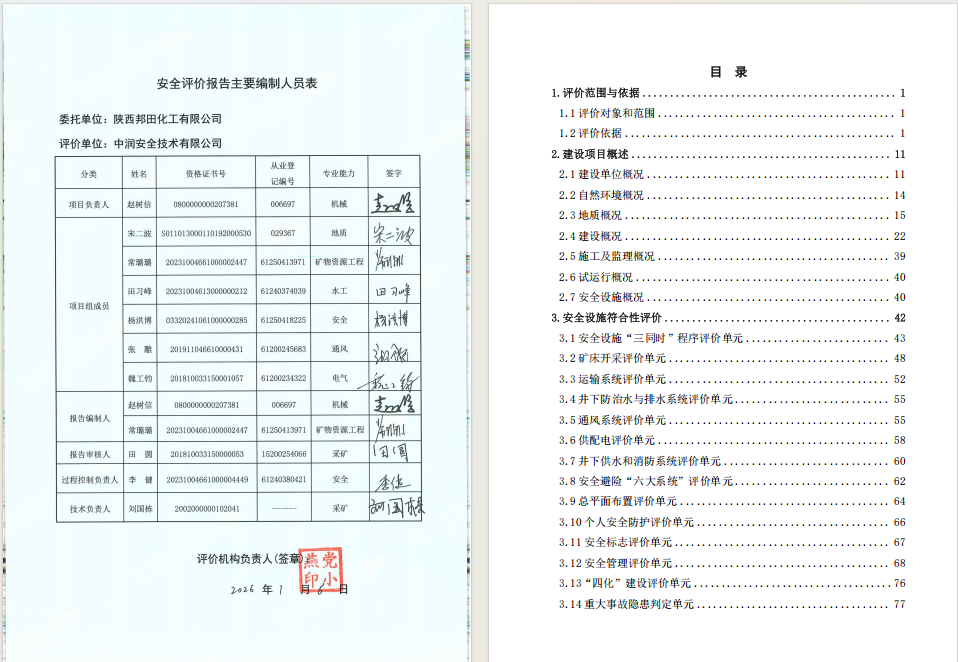 安全评价报告主要编制人员表
委托单位：陕西邦田化工有限公司
评价单位：中润安全技术有限公司
分类 姓名 资格证书号 从业登记编号 专业能力 签字
项目负责人 赵树信 0800000000207381 006697 机械
项目组成员 宋二波 S011013000110192000530 029367 地质 宋二波
常璐璐 20231004661000002447 61250413971 矿物资源工程
田习峰 20231004613000000212 61240374039 水工 田习峰
杨洪博 03320241061000000285 61250418225 安全 杨洪博
张 雕 201911046610000431 61200245683 通风
魏工钧 201810033150001057 61200234322 电气
报告编制人 赵树信 0800000000207381 006697 机械
常璐璐 20231004661000002447 61250413971 矿物资源工程
报告审核人 田 圆 201810033150000053 15200254066 采矿 田圆
过程控制负责人 李 健 20231004661000004449 61240380421 安全 李健
技术负责人 刘国栋 2002000000102041 ------ 采矿 刘国栋
评价机构负责人(签章)
党小燕印
2026 年 1 月 6 日
目 录
1.评价范围与依据 1
1.1 评价对象和范围 1
1.2 评价依据 1
2.建设项目概述 11
2.1 建设单位概况 11
2.2 自然环境概况 14
2.3 地质概况 15
2.4 建设概况 22
2.5 施工及监理概况 39
2.6 试运行概况 40
2.7 安全设施概况 40
3.安全设施符合性评价 42
3.1 安全设施“三同时”程序评价单元 43
3.2 矿床开采评价单元 48
3.3 运输系统评价单元 52
3.4 井下防治水与排水系统评价单元 55
3.5 通风系统评价单元 55
3.6 供配电评价单元 58
3.7 井下供水和消防系统评价单元 60
3.8 安全避险“六大系统”评价单元 62
3.9 总平面布置评价单元 64
3.10 个人安全防护评价单元 66
3.11 安全标志评价单元 67
3.12 安全管理评价单元 68
3.13 “四化”建设评价单元 76
3.14 重大事故隐患判定单元 77